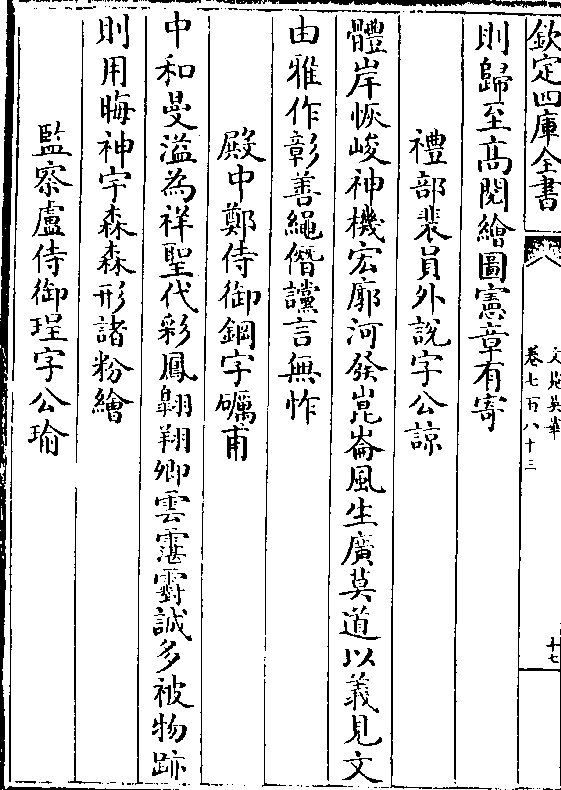 欽定四庫全書
文苑英華
卷七百八十三
十七
則歸至高閱繪圖憲章有寄
禮部裴員外説字公諒
體岸恢峻神機宏廓河發崑崙風生廣莫道以義見文
由雅作彰善繩僭讜言無怍
殿中鄭侍御鋼字礪甫
中和曼溢為祥聖代彩鳳翺翔卿雲䨴霨誠多被物跡
則用晦神宇森森形諸粉繪
監察盧侍御珵字公瑜